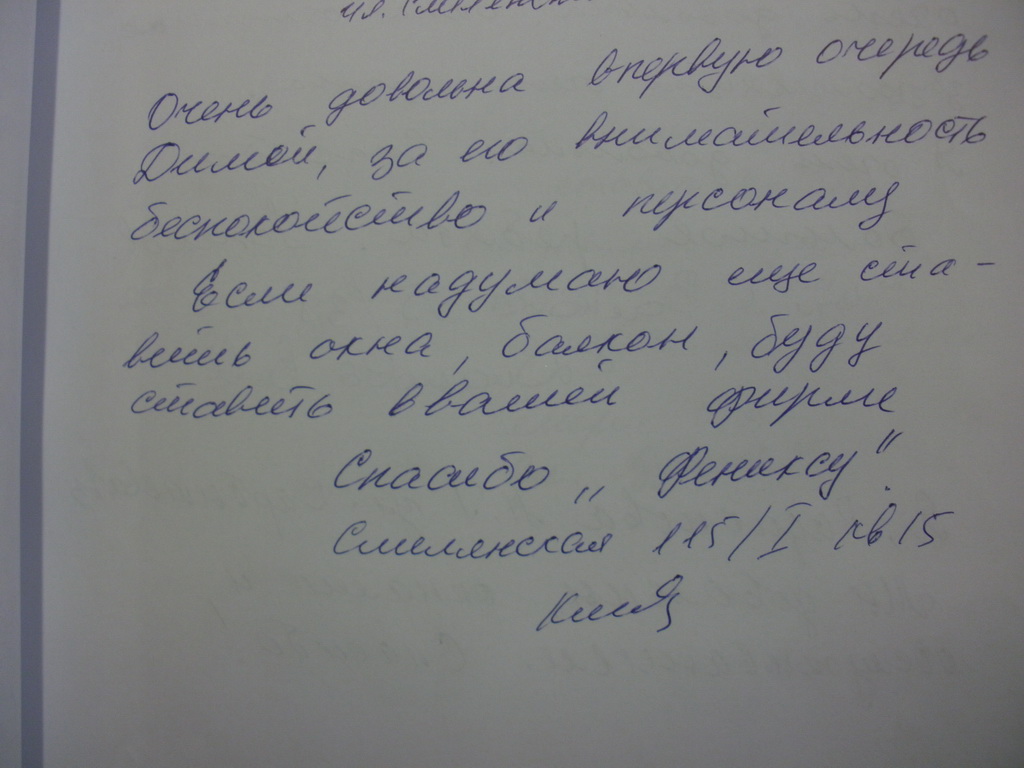 Очень довольна впервую очередь
Димой, за его внимательность
беспокойство и персоналу
Если надумаю еще ста-
вить окна, балкон, буду
ставить в вашей фирме
Спасибо „Фениксу".
Смелянская 115/I кв 15